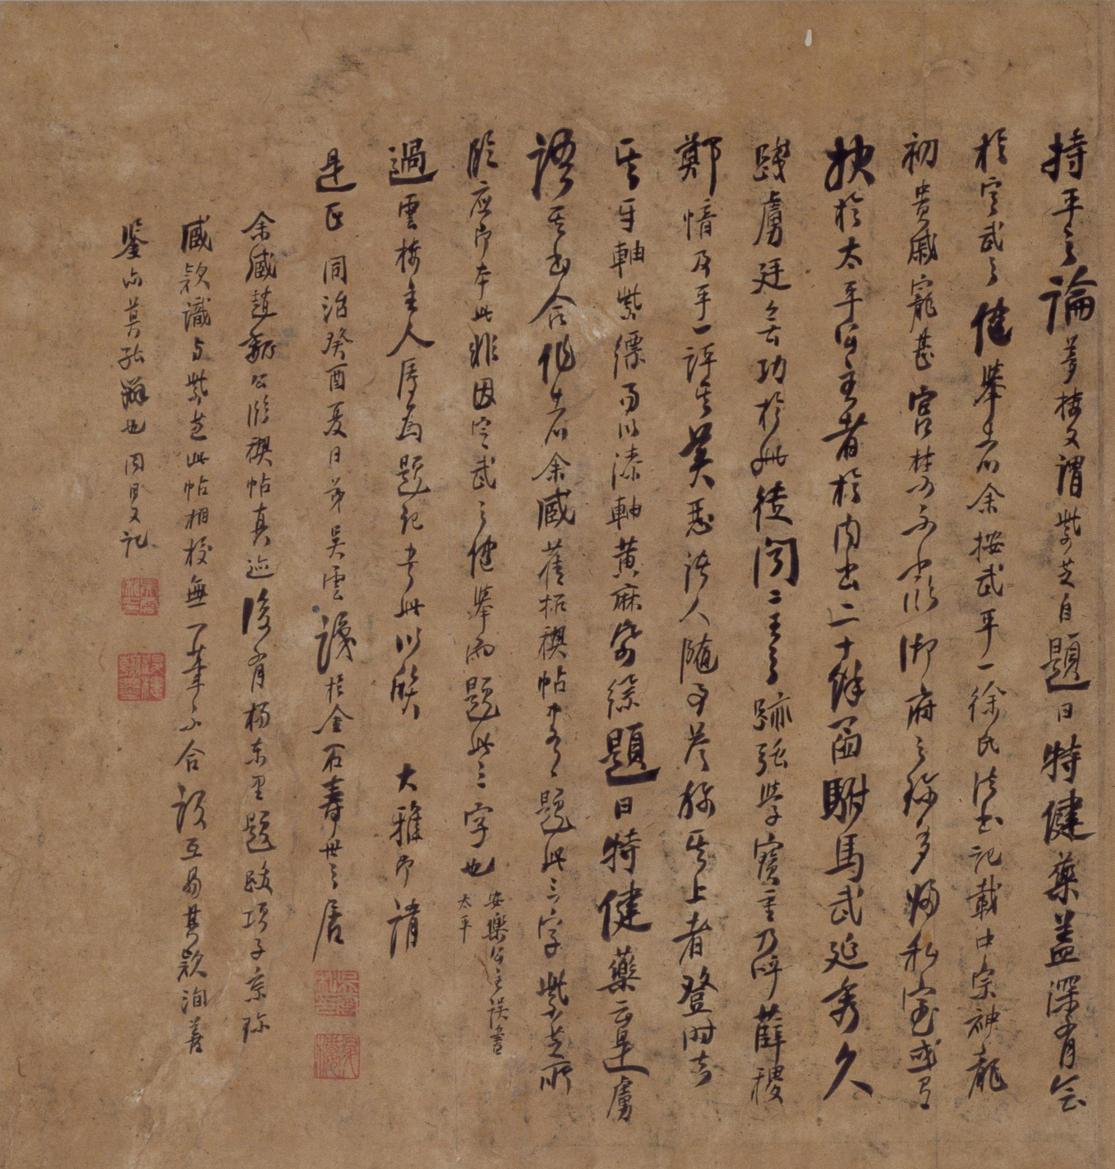 持平之論夢楼又謂紫芝自題曰特健藥蓋深有会
於定武之健舉者余按武平一徐氏法書記載中宗神龍
初貴戚寵甚宮禁不嚴御府之珍多歸私室或有
於太平公主者於内出二十餘函駙馬武延秀久
踐虜廷無功於此徒聞二王之跡強學寶重乃呼薛稷
鄭愔及平一評其善惡諂人随事答稱其上者登時去
其牙軸紫縹易以漆軸黄麻紙縹題曰特健藥云是虜
語其書合作者余臧舊拓禊帖中有題此三字紫芝所
臨应即本此非因定武之健舉而題此三字也
安樂公主誤書
太平
過雲楼主人属為題記書此以 大雅即請
是正 同治癸酉夏日弟吳雲識於金石壽世之居
余臧趙公臨禊帖真迹後有楊东里題跋項子京珍
臧款識与紫芝此帖相校無一筆不合設互易其款洵善
鑒亦莫能辦也同日又記